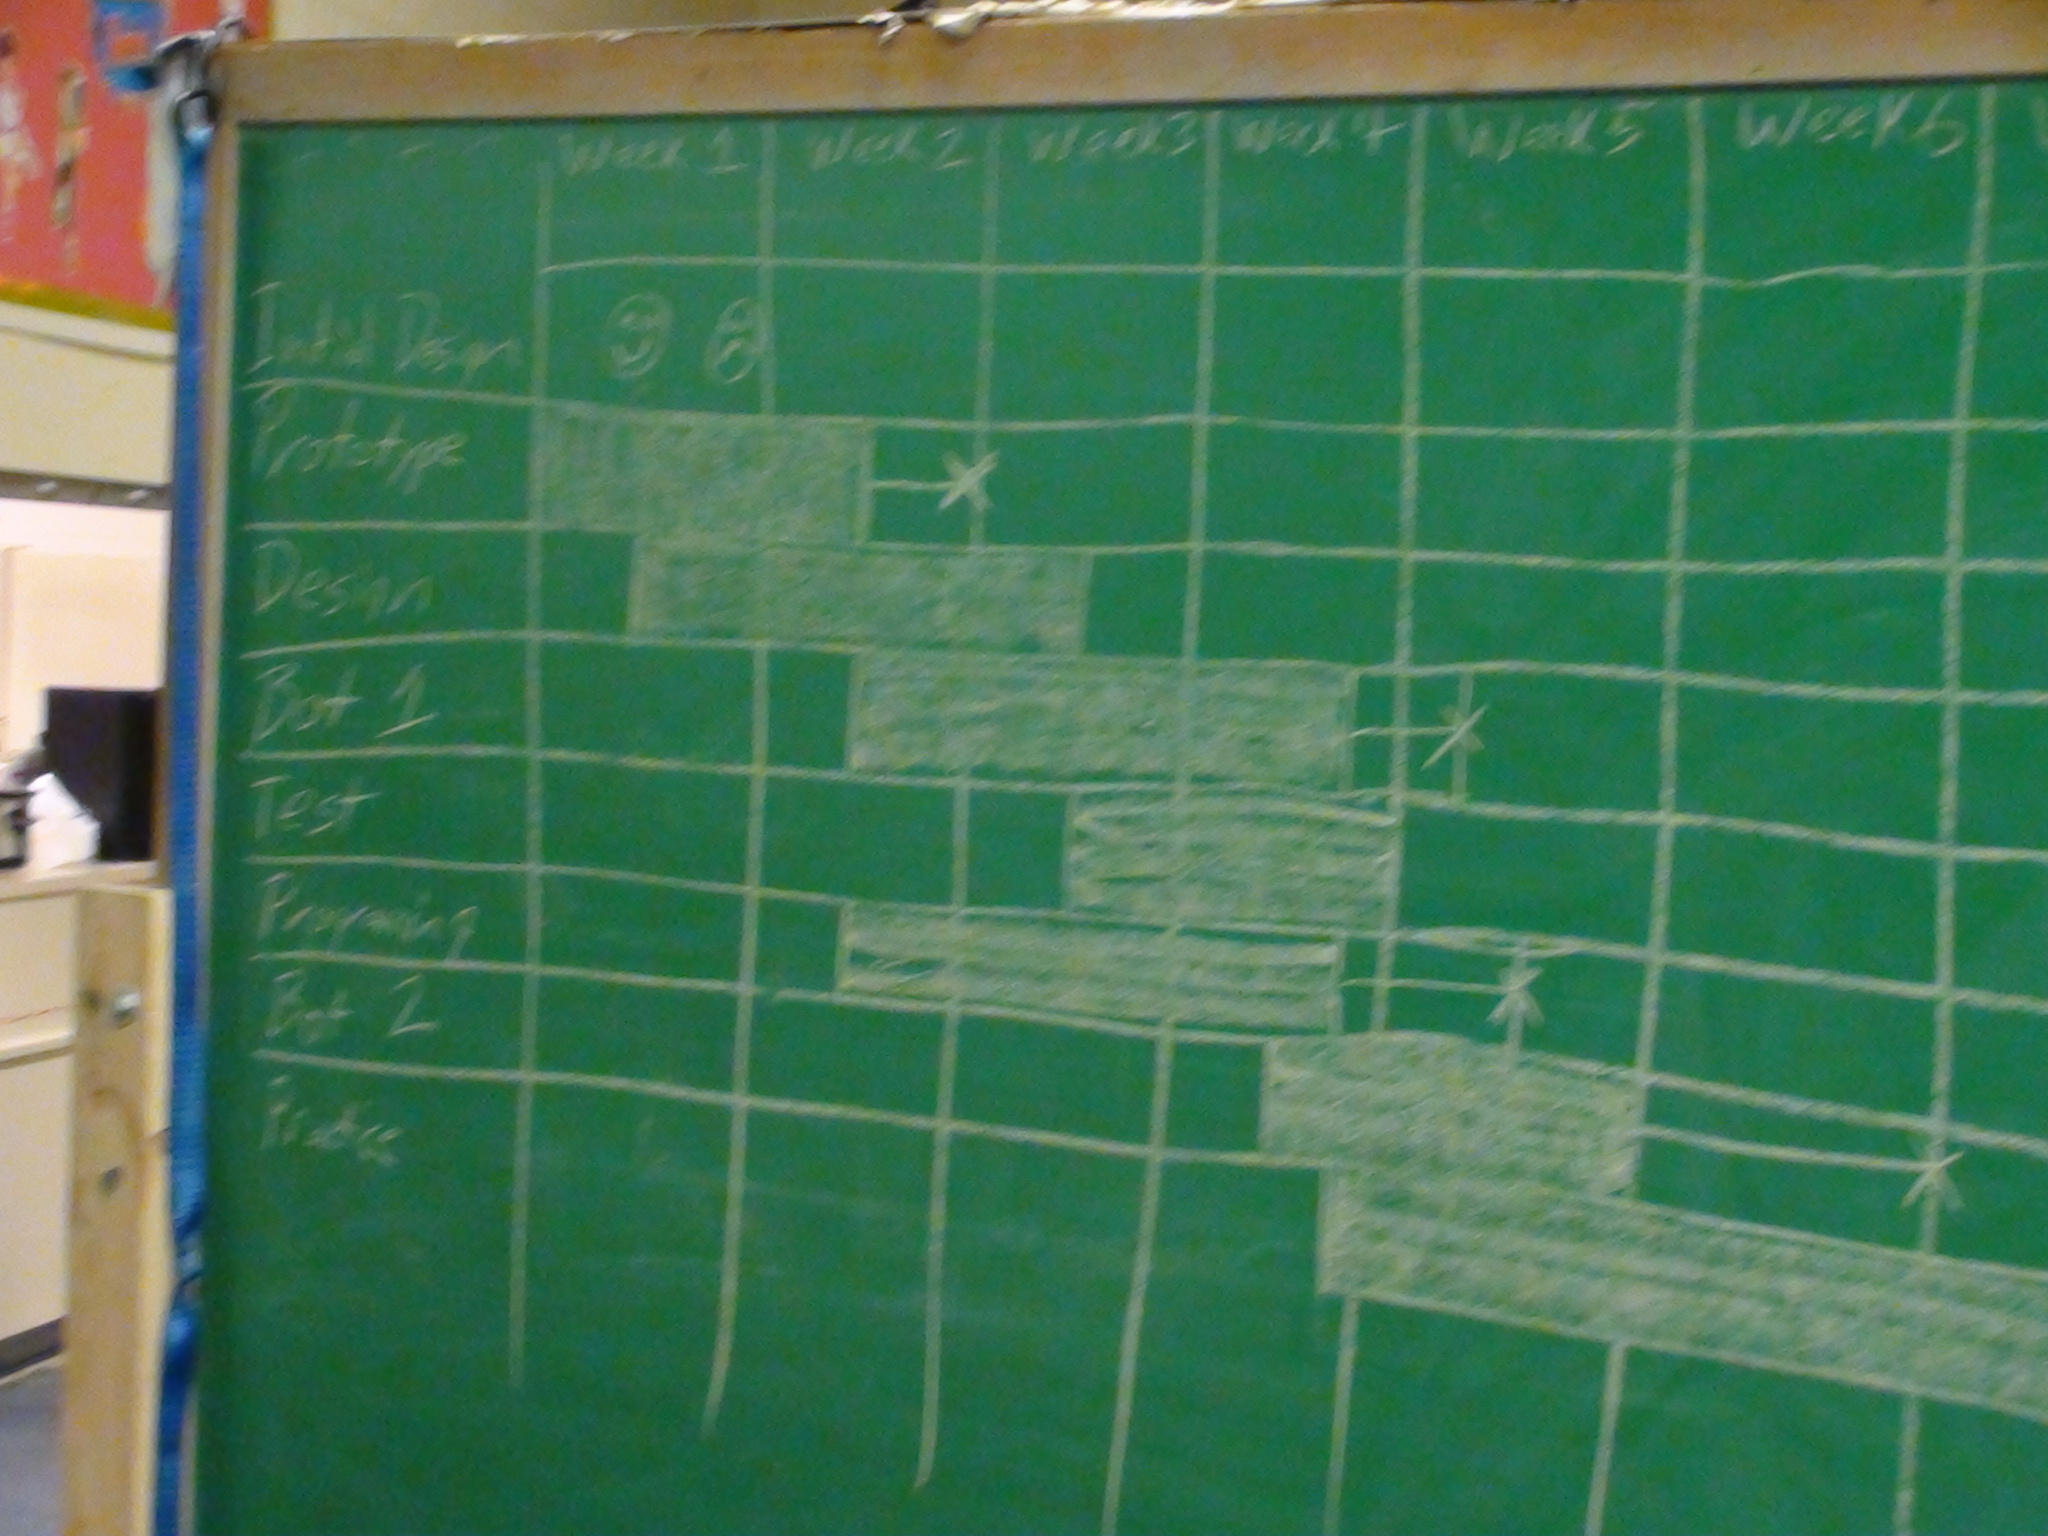 Week 1 Week 2 Week 3 Week 4 Week 5 Week 6
Initial Design
Prototype
Design
Bot 1
Test
Programing
Bot 2